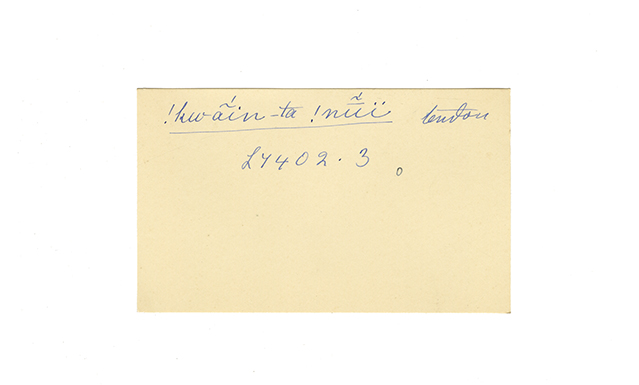 !kwã́in-ta !nṻ̃ï tendon
LY402.3.